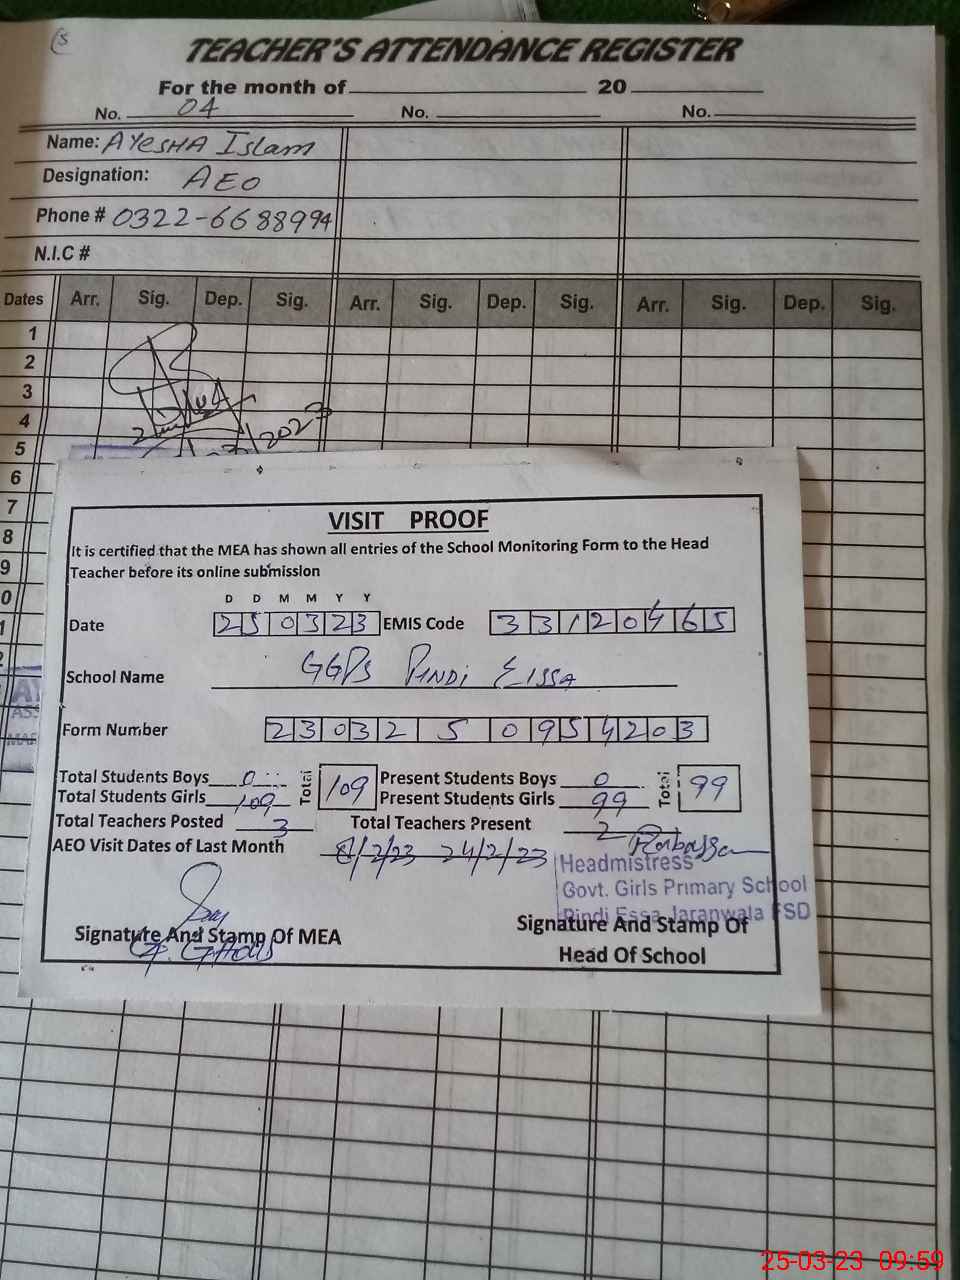 5
TEACHER'S ATTENDANCE REGISTER
For the month of 20
No. 04 No. No.
Name: AYESHA Islam
Designation: AEO
Phone # 0322-6688994
N.I.C #
Dates Arr. Sig. Dep. Sig. Arr. Sig. Dep. Sig. Arr. Sig. Dep. Sig.
1
2
3
4
/2023
5
6
7
8
9
0
1
VISIT PROOF
It is certified that the MEA has shown all entries of the School Monitoring Form to the Head
Teacher before its online submission
D D M M Y Y
Date 250323 EMIS Code 33120465
School Name GGPS Pindi Eissa
Form Number 23032 5 0954203
Total Students Boys 0 Total 109 Present Students Boys 0 Total 99
Total Students Girls 109 Present Students Girls 99
Total Teachers Posted 3 Total Teachers Present 2
AEO Visit Dates of Last Month 8/2/23 24/2/23
Headmistress
Govt. Girls Primary School
Pindi Essa Jaranwala FSD
Signature And Stamp Of MEA Signature And Stamp Of
Head Of School
25-03-23 09:59